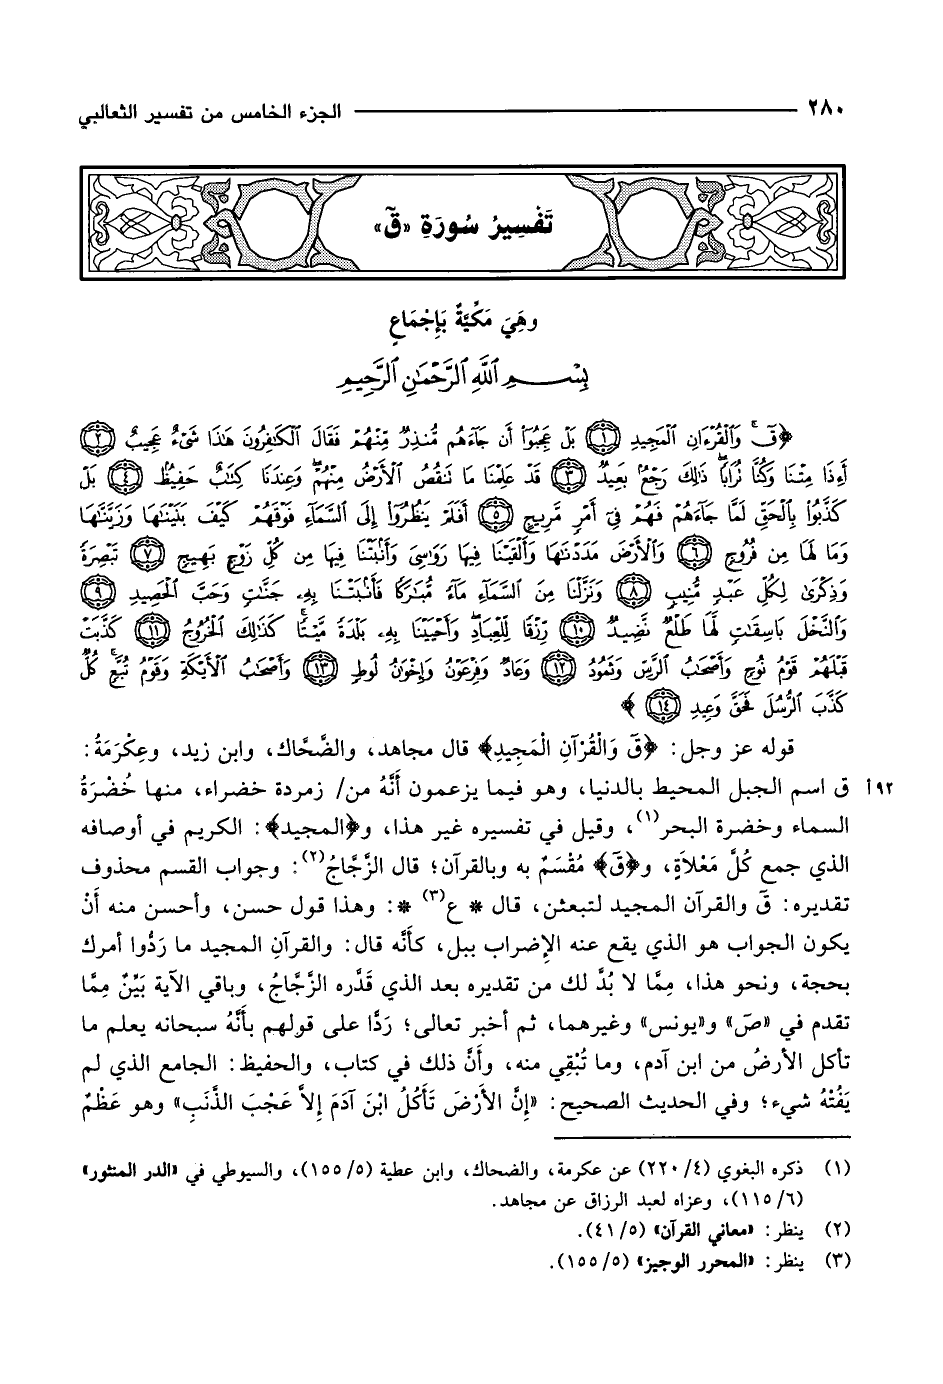 ٢٨٠ الجزء الخامس من تفسير الثعالبي
تَفْسِيرُ سُورَةِ «قَ»
وهِيَ مَكِّيَّةٌ بِإجْمَاعٍ
بِسْمِ ٱللَّهِ ٱلرَّحْمَٰنِ ٱلرَّحِيمِ
﴿قٓ وَٱلْقُرْءَانِ ٱلْمَجِيدِ ﴿١﴾ بَلْ عَجِبُوٓا۟ أَن جَآءَهُم مُّنذِرٌ مِّنْهُمْ فَقَالَ ٱلْكَٰفِرُونَ هَٰذَا شَىْءٌ عَجِيبٌ ﴿٢﴾
أَءِذَا مِتْنَا وَكُنَّا تُرَابًا ذَٰلِكَ رَجْعٌۢ بَعِيدٌ ﴿٣﴾ قَدْ عَلِمْنَا مَا تَنقُصُ ٱلْأَرْضُ مِنْهُمْ وَعِندَنَا كِتَٰبٌ حَفِيظٌۢ ﴿٤﴾ بَلْ
كَذَّبُوا۟ بِٱلْحَقِّ لَمَّا جَآءَهُمْ فَهُمْ فِىٓ أَمْرٍ مَّرِيجٍ ﴿٥﴾ أَفَلَمْ يَنظُرُوٓا۟ إِلَى ٱلسَّمَآءِ فَوْقَهُمْ كَيْفَ بَنَيْنَٰهَا وَزَيَّنَّٰهَا
وَمَا لَهَا مِن فُرُوجٍ ﴿٦﴾ وَٱلْأَرْضَ مَدَدْنَٰهَا وَأَلْقَيْنَا فِيهَا رَوَٰسِىَ وَأَنۢبَتْنَا فِيهَا مِن كُلِّ زَوْجٍۭ بَهِيجٍ ﴿٧﴾ تَبْصِرَةً
وَذِكْرَىٰ لِكُلِّ عَبْدٍ مُّنِيبٍ ﴿٨﴾ وَنَزَّلْنَا مِنَ ٱلسَّمَآءِ مَآءً مُّبَٰرَكًا فَأَنۢبَتْنَا بِهِۦ جَنَّٰتٍ وَحَبَّ ٱلْحَصِيدِ ﴿٩﴾
وَٱلنَّخْلَ بَاسِقَٰتٍ لَّهَا طَلْعٌ نَّضِيدٌ ﴿١٠﴾ رِّزْقًا لِّلْعِبَادِ وَأَحْيَيْنَا بِهِۦ بَلْدَةً مَّيْتًا كَذَٰلِكَ ٱلْخُرُوجُ ﴿١١﴾ كَذَّبَتْ
قَبْلَهُمْ قَوْمُ نُوحٍ وَأَصْحَٰبُ ٱلرَّسِّ وَثَمُودُ ﴿١٢﴾ وَعَادٌ وَفِرْعَوْنُ وَإِخْوَٰنُ لُوطٍ ﴿١٣﴾ وَأَصْحَٰبُ ٱلْأَيْكَةِ وَقَوْمُ تُبَّعٍ كُلٌّ
كَذَّبَ ٱلرُّسُلَ فَحَقَّ وَعِيدِ ﴿١٤﴾ ﴾
قوله عز وجل: ﴿قَ وَالْقُرْآنِ الْمَجِيدِ﴾ قال مجاهد، والضَّحَّاك، وابن زيد، وعِكْرَمَةُ:
٩٢أ ق اسم الجبل المحيط بالدنيا، وهو فيما يزعمون أَنَّهُ من/ زمردة خضراء، منها خُضْرَةُ
السماء وخضرة البحر(١)، وقيل في تفسيره غير هذا، و﴿المجيد﴾: الكريم في أوصافه
الذي جمع كُلَّ مَعْلاَةٍ، و﴿قَ﴾ مُقْسَمٌ به وبالقرآن؛ قال الزَّجَّاجُ(٢): وجواب القسم محذوف
تقديره: قَ والقرآن المجيد لتبعثن، قال * ع(٣) *: وهذا قول حسن، وأحسن منه أَنْ
يكون الجواب هو الذي يقع عنه الإِضراب ببل، كأَنَّه قال: والقرآنِ المجيد ما رَدُّوا أمرك
بحجة، ونحو هذا، مِمَّا لا بُدَّ لك من تقديره بعد الذي قَدَّره الزَّجَّاجُ، وباقي الآية بَيِّنٌ مِمَّا
تقدم في «صَ» و«يونس» وغيرهما، ثم أخبر تعالى؛ رَدًّا على قولهم بأَنَّهُ سبحانه يعلم ما
تأكل الأرضُ من ابن آدم، وما تُبْقِي منه، وأَنَّ ذلك في كتاب، والحفيظ: الجامع الذي لم
يَفُتْهُ شيء؛ وفي الحديث الصحيح: «إنَّ الأَرْضَ تَأكُلُ ابْنَ آدَمَ إلاَّ عَجْبَ الذَّنَبِ» وهو عَظْمٌ
(١) ذكره البغوي (٤/ ٢٢٠) عن عكرمة، والضحاك، وابن عطية (٥/ ١٥٥)، والسيوطي في «الدر المنثور»
(٦/ ١١٥)، وعزاه لعبد الرزاق عن مجاهد.
(٢) ينظر: «معاني القرآن» (٥/ ٤١).
(٣) ينظر: «المحرر الوجيز» (٥/ ١٥٥).